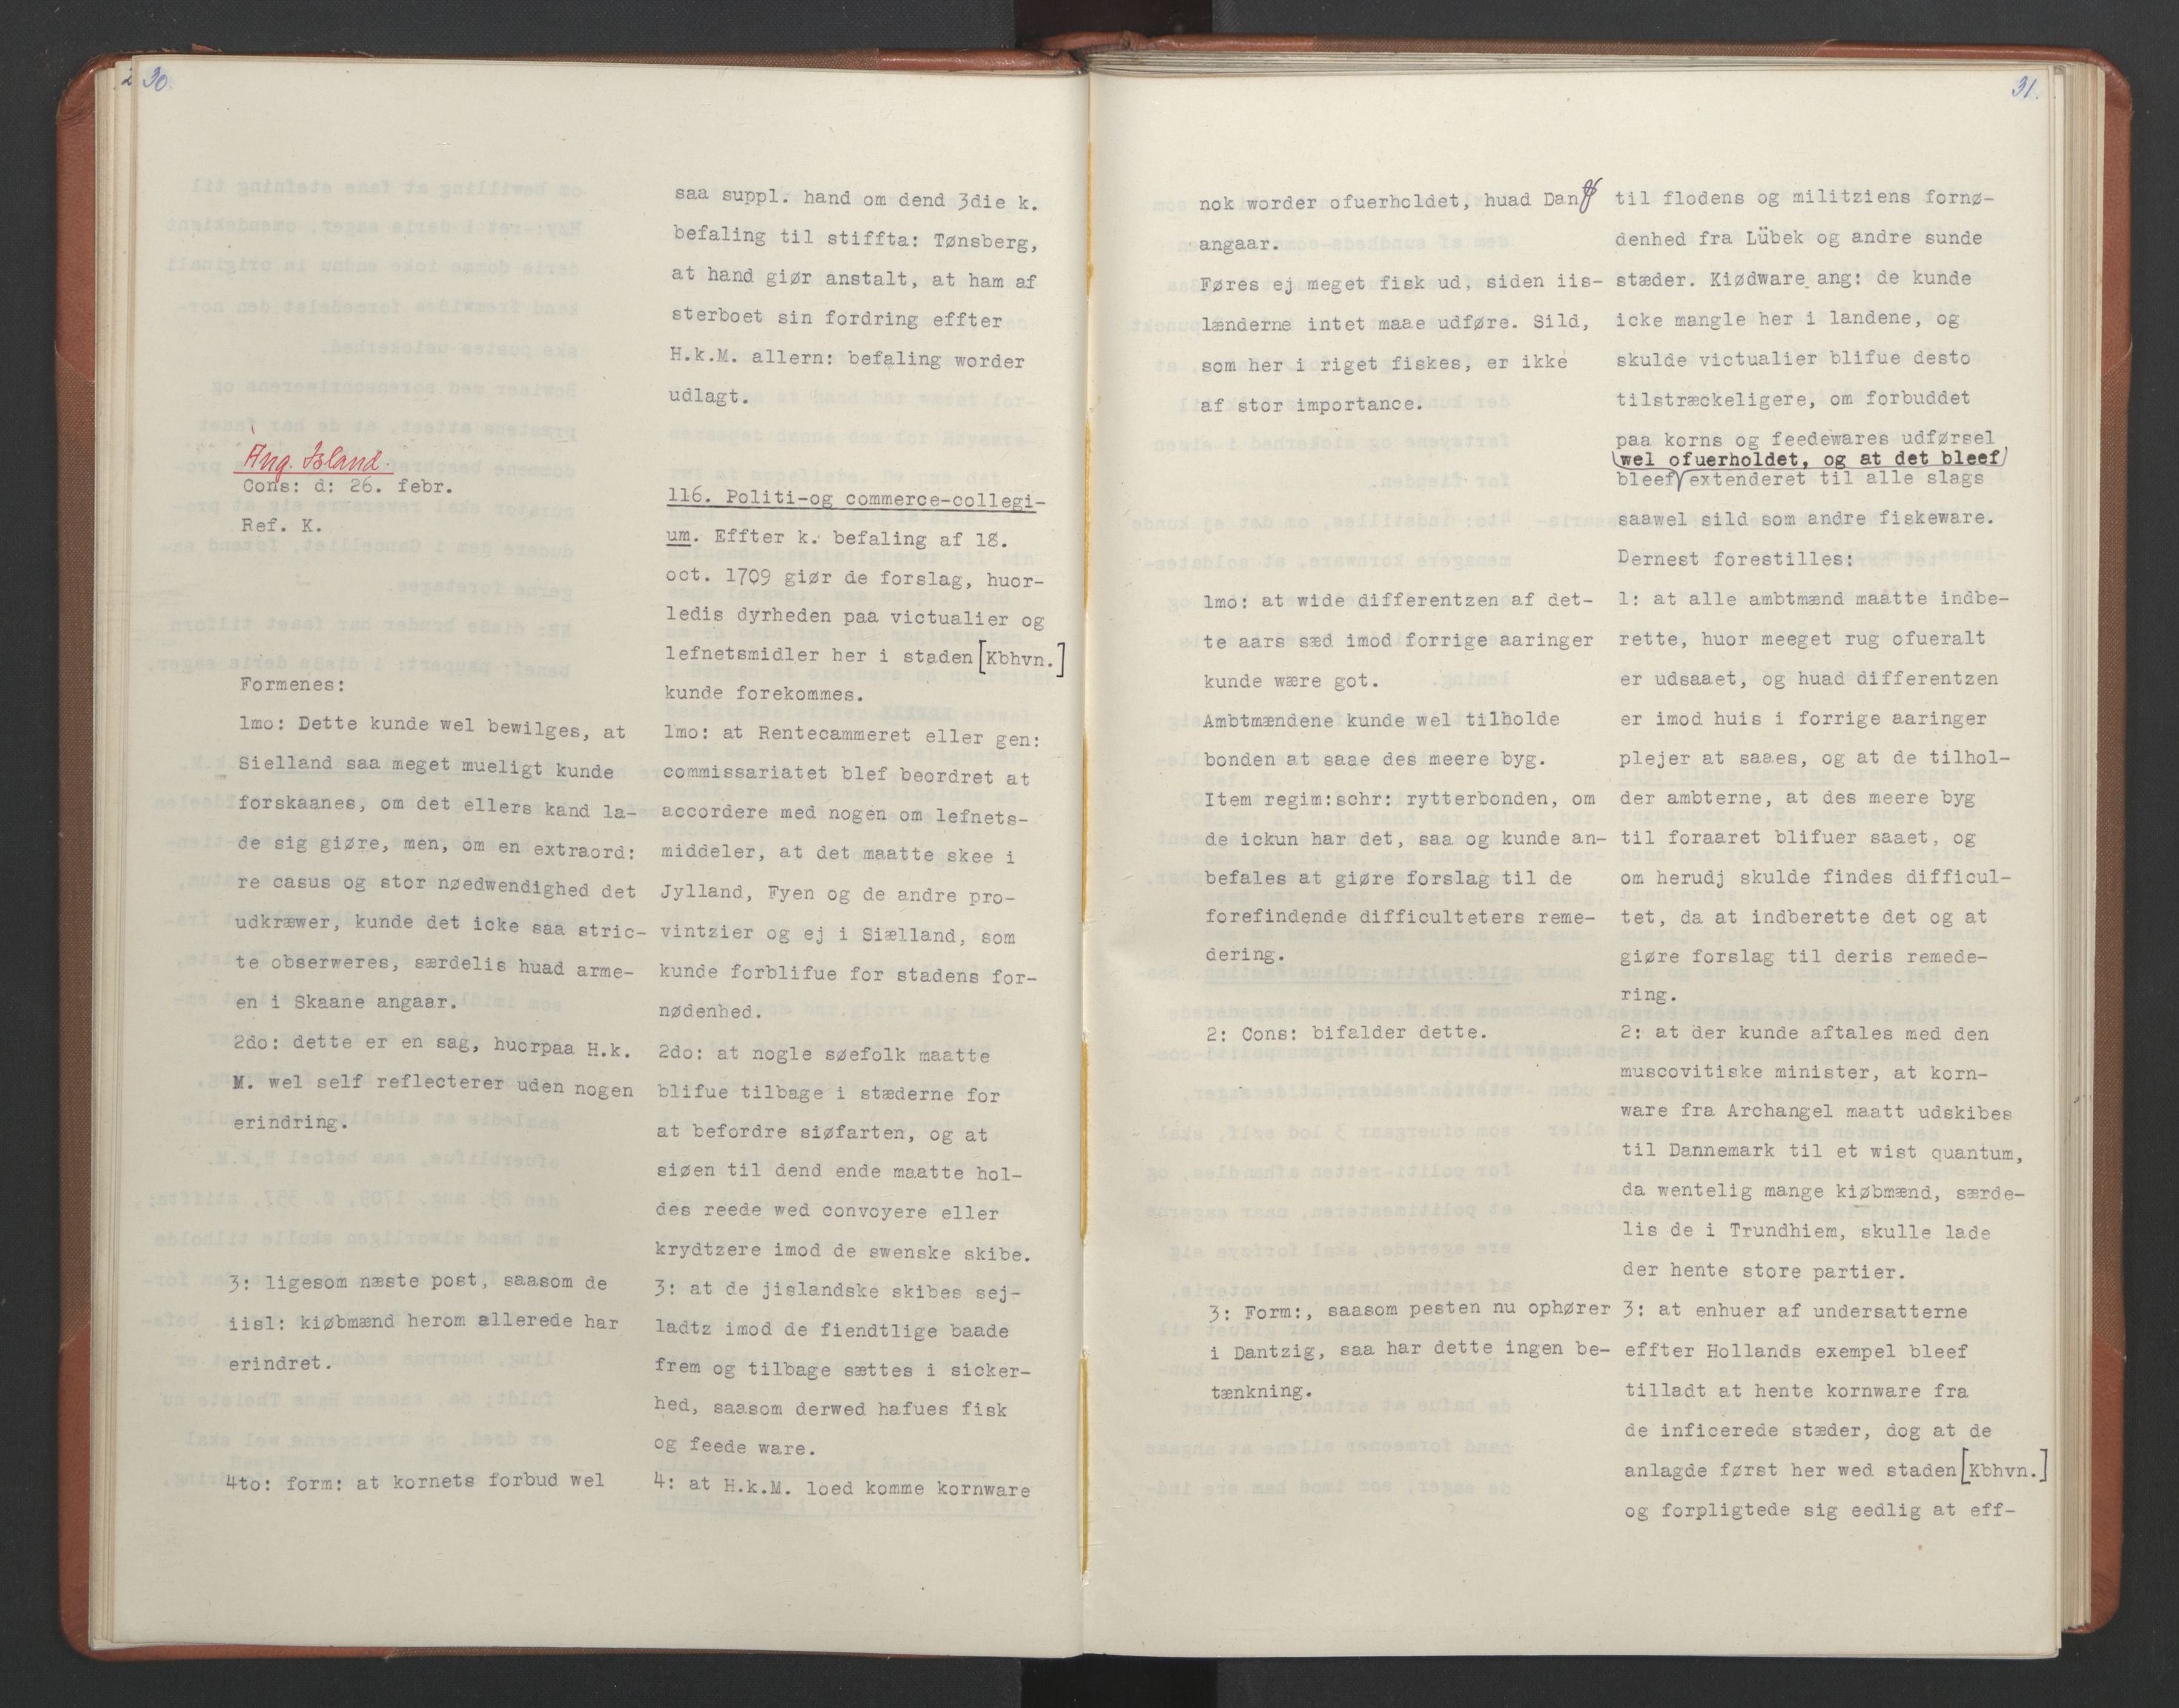 30.
Ang. Island.
Cons: d: 26. febr.
Ref. K.
Formenes:
1mo: Dette kunde wel bewilges, at
Sielland saa meget mueligt kunde
forskaanes, om det ellers kand la-
de sig giøre, men, om en extraord:
re casus og stor nøedwendighed det
udkræwer, kunde det icke saa stric-
te obserweres, særdelis huad arme-
en i Skaane angaar.
2do: dette er en sag, huorpaa H.k.
M. wel self reflecterer uden nogen
erindring.
3: ligesom næste post, saasom de
iisl: kiøbmænd herom allerede har
erindret.
4to: form: at kornets forbud wel
saa suppl. hand om dend 3die k.
befaling til stiffta: Tønsberg,
at hand giør anstalt, at ham af
sterboet sin fordring effter
H.k.M. allern: befaling worder
udlagt.
116. Politi-og commerce-collegi-
um. Effter k. befaling af 18.
oct. 1709 giør de forslag, huor-
ledis dyrheden paa victualier og
lefnetsmidler her i staden [Kbhvn.]
kunde forekommes.
1mo: at Rentecammeret eller gen:
commissariatet blef beordret at
accordere med nogen om lefnets-
middeler, at det maatte skee i
Jylland, Fyen og de andre pro-
vintzier og ej i Siælland, som
kunde forblifue for stadens for-
nødenhed.
2do: at nogle søefolk maatte
blifue tilbage i stæderne for
at befordre siøfarten, og at
siøen til dend ende maatte hol-
des reede wed convoyere eller
krydtzere imod de swenske skibe.
3: at de jislandske skibes sej-
ladtz imod de fiendtlige baade
frem og tilbage sættes i sicker-
hed, saasom derwed hafues fisk
og feede ware.
4: at H.k.M. loed komme kornware
31.
nok worder ofuerholdet, huad Dan
angaar.
Føres ej meget fisk ud, siden iis-
lænderne intet maae udføre. Sild,
som her i riget fiskes, er ikke
af stor importance.
1mo: at wide differentzen af det-
te aars sæd imod forrige aaringer
kunde wære got.
Ambtmændene kunde wel tilholde
bonden at saae des meere byg.
Item regim:schr: rytterbonden, om
de ickun har det, saa og kunde an-
befales at giøre forslag til de
forefindende difficulteters reme-
dering.
2: Cons: bifalder dette.
3: Form:, saasom pesten nu ophører
i Dantzig, saa har dette ingen be-
tænkning.
til flodens og militziens fornø-
denhed fra Lübek og andre sunde
stæder. Kiødware ang: de kunde
icke mangle her i landene, og
skulde victualier blifue desto
tilstræckeligere, om forbuddet
paa korns og feedewares udførsel
wel ofuerholdet, og at det bleef
bleef extenderet til alle slags
saawel sild som andre fiskeware.
Dernest forestilles:
1: at alle ambtmænd maatte indbe-
rette, huor meeget rug ofueralt
er udsaaet, og huad differentzen
er imod huis i forrige aaringer
plejer at saaes, og at de tilhol-
der ambterne, at des meere byg
til foraaret blifuer saaet, og
om herudj skulde findes difficul-
tet, da at indberette det og at
giøre forslag til deris remede-
ring.
2: at der kunde aftales med den
muscovitiske minister, at korn-
ware fra Archangel maatt udskibes
til Dannemark til et wist quantum,
da wentelig mange kiøbmænd, særde-
lis de i Trundhiem, skulle lade
der hente store partier.
3: at enhuer af undersatterne
effter Hollands exempel bleef
tilladt at hente kornware fra
de inficerede stæder, dog at de
anlagde først her wed staden [Kbhvn.]
og forpligtede sig eedlig at eff-